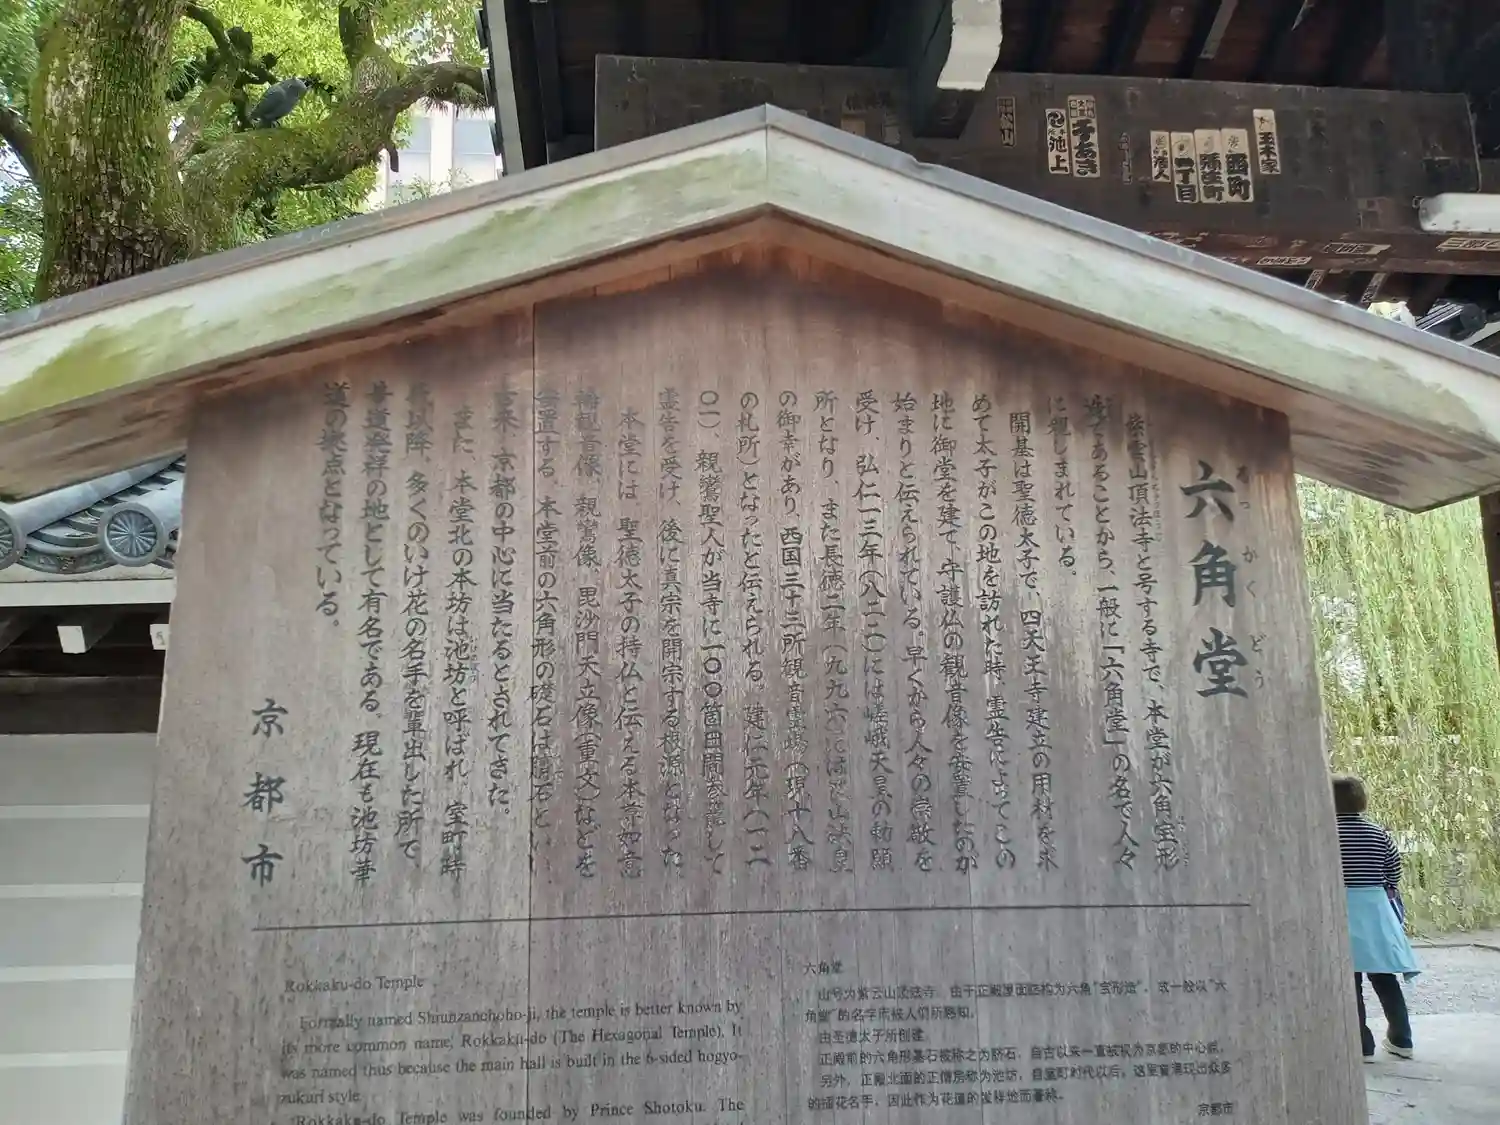 六角堂
ろっかくどう
紫雲山頂法寺と号する寺で、本堂が六角宝形
造であることから、一般に「六角堂」の名で人々
に親しまれている。
開基は聖徳太子で、四天王寺建立の用材を求
めて太子がこの地を訪れた時、霊告によってこの
地に御堂を建て、守護仏の観音像を安置したのが
始まりと伝えられている。早くから人々の崇敬を
受け、弘仁一三年(八二二)には嵯峨天皇の勅願
所となり、また長徳二年(九九六)には花山法皇
の御幸があり、西国三十三所観音霊場(現十八番
の札所)となったと伝えられる。建仁元年(一二
〇一)、親鸞聖人が当寺に一〇〇箇日間参籠して
霊告を受け、後に真宗を開宗する根源となった
本堂には、聖徳太子の持仏と伝える本尊如意
輪観音像、親鸞像、毘沙門天立像(重文)などを
安置する。本堂前の六角形の礎石は臍石といい
古来、京都の中心に当たるとされてきた。
また、本堂北の本坊は池坊と呼ばれ、室町時
代以降、多くのいけ花の名手を輩出した所で、
華道発祥の地として有名である。現在も池坊華
道の拠点となっている。
京都市
Rokkaku-do Temple
Formally named Shiunzanchoho-ji, the temple is better known by
its more common name, Rokkaku-do (The Hexagonal Temple). It
was named thus because the main hall is built in the 6-sided hogyo-
zukuri style.
Rokkaku-do Temple was founded by Prince Shotoku. The
六角堂
山号为紫云山顶法寺。由于正殿屋面结构为六角“宝形造”,故一般以“六
角堂”的名字而被人们所熟知。
由圣德太子所创建。
正殿前的六角形基石被称之为脐石,自古以来一直被视为京都的中心点。
另外,正殿北面的正僧房称为池坊,自室町时代以后,这里曾涌现出众多
的插花名手,因此作为花道的发祥地而著称。
京都市
池上
西町
二丁目
玉木家